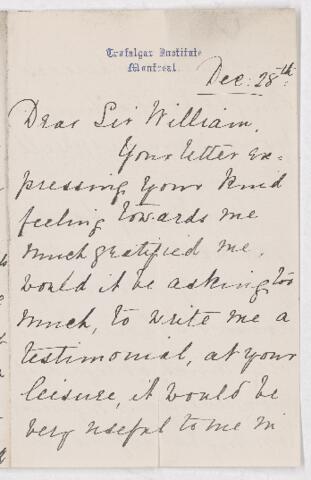 Trafalgar Institute
Montreal.
Dec: 28th
Dear Sir William,
Your letter ex-
pressing your kind
feeling towards me
much gratified me,
would it be asking too
much, to write me a
testimonial, at your
leisure, it would be
very useful to me in